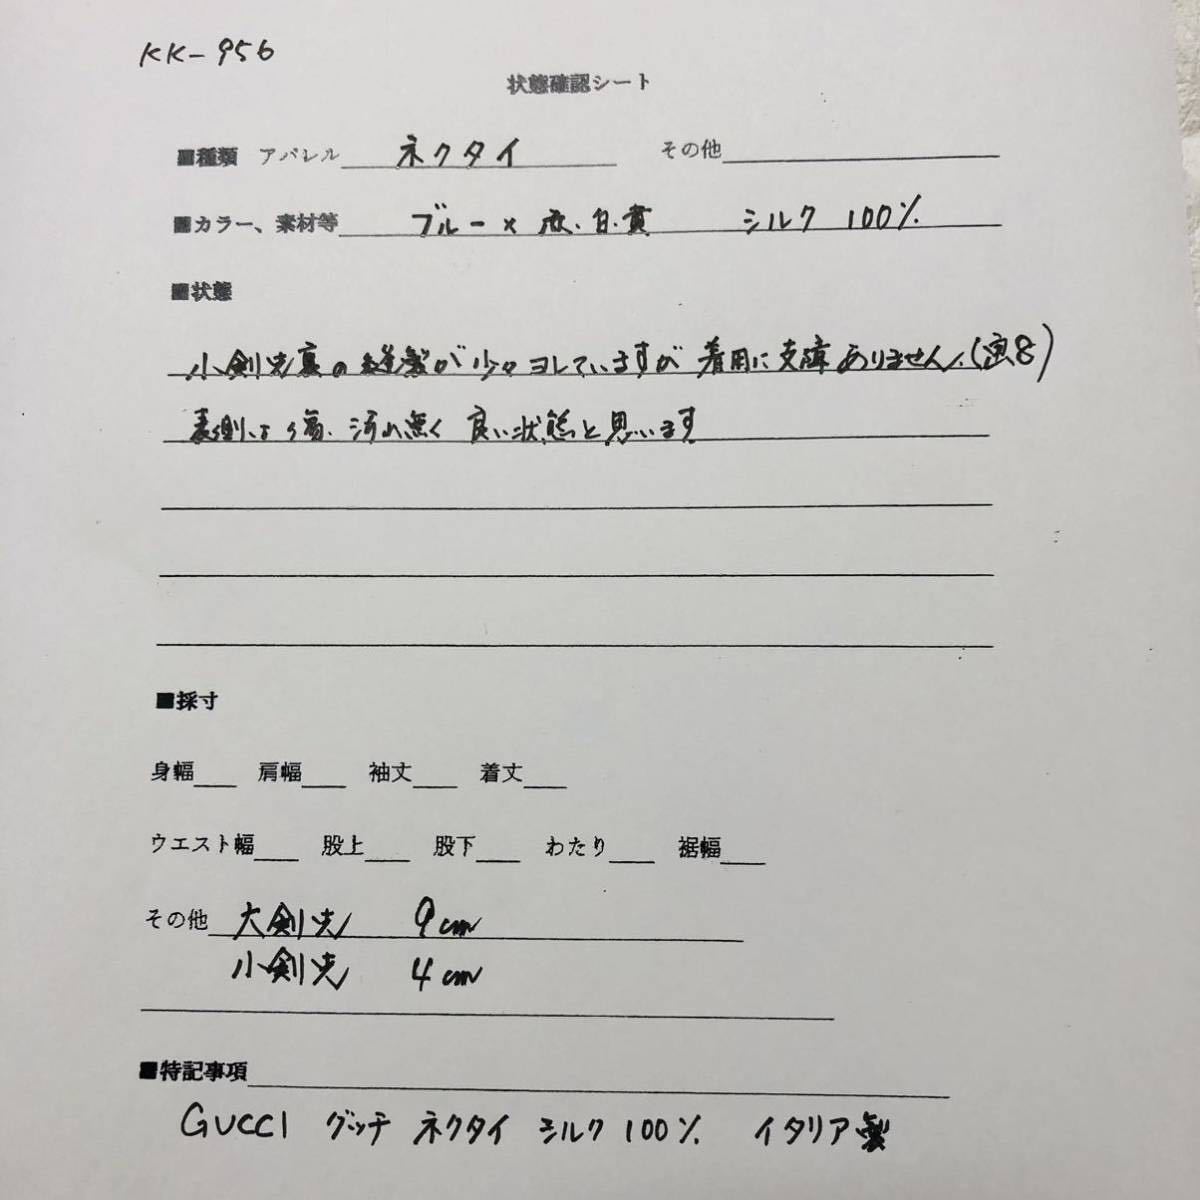 KK-956
状態確認シート
■種類 アパレル ネクタイ その他
■カラー、素材等 ブルー×灰.白.黄 シルク 100%
■状態
小剣先裏の縫製が少々ヨレていますが着用に支障ありません.(画8)
表側はキ傷.汚れ無く 良い状態と思います
■採寸
身幅 肩幅 袖丈 着丈
ウエスト幅 股上 股下 わたり 裾幅
その他 大剣先 9cm
小剣先 4cm
■特記事項
GUCCI グッチ ネクタイ シルク 100% イタリア製